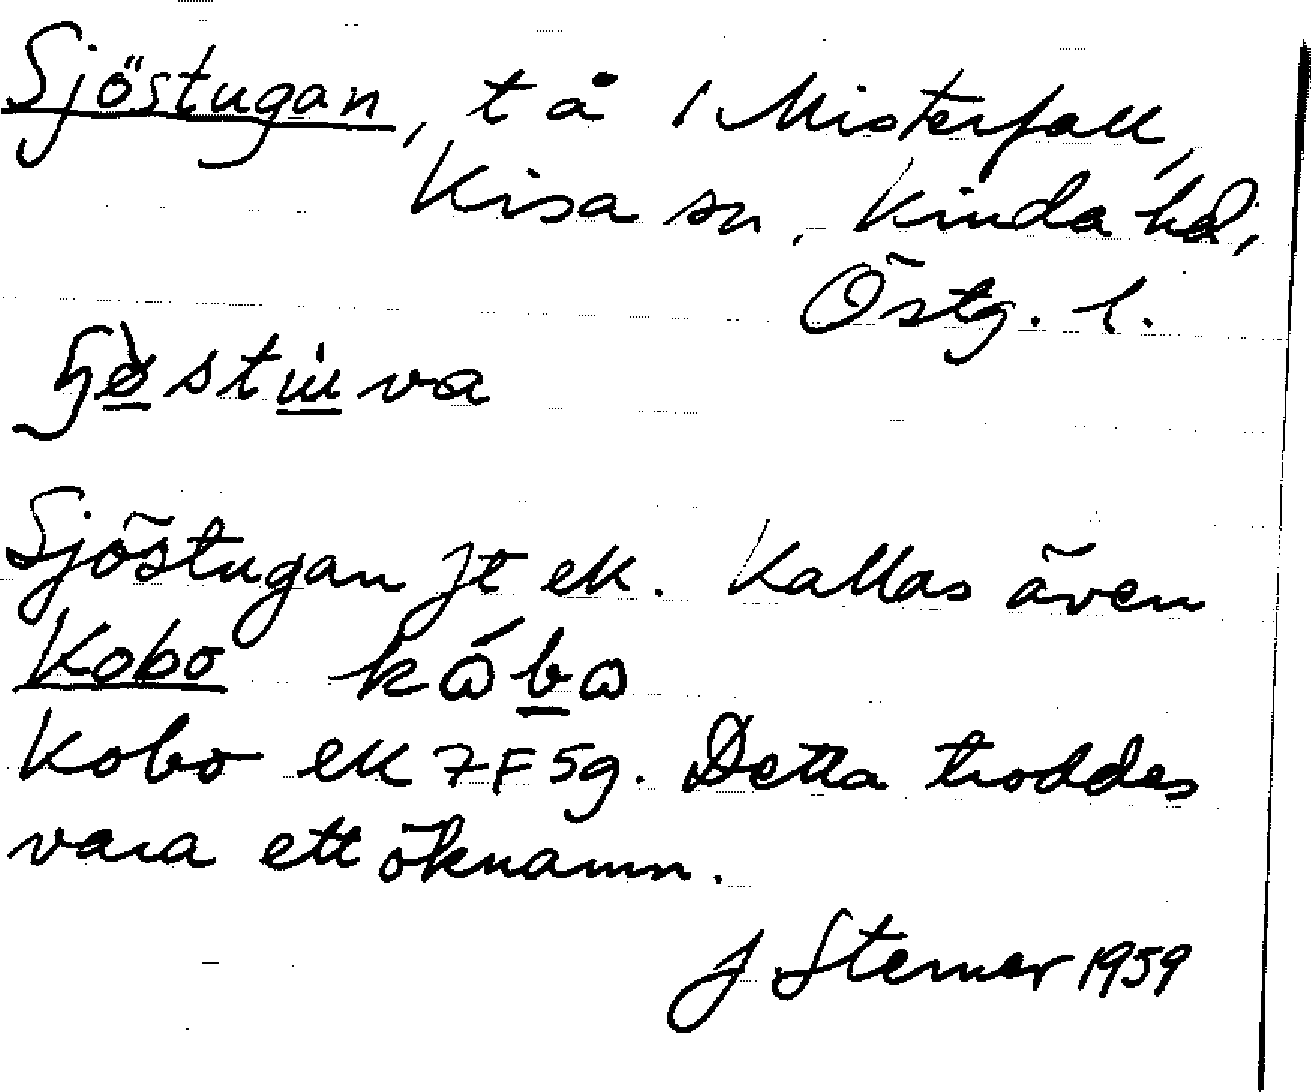 Sjöstugan, t å 1 Misterfall,
Kisa sn, Kinda hd,
Östg. l.
Sjöstugan jt ek. Kallas även
Kobo kåbo
Kobo ek 7F5g. Detta troddes
vara ett öknamn.
J Sterner 1959